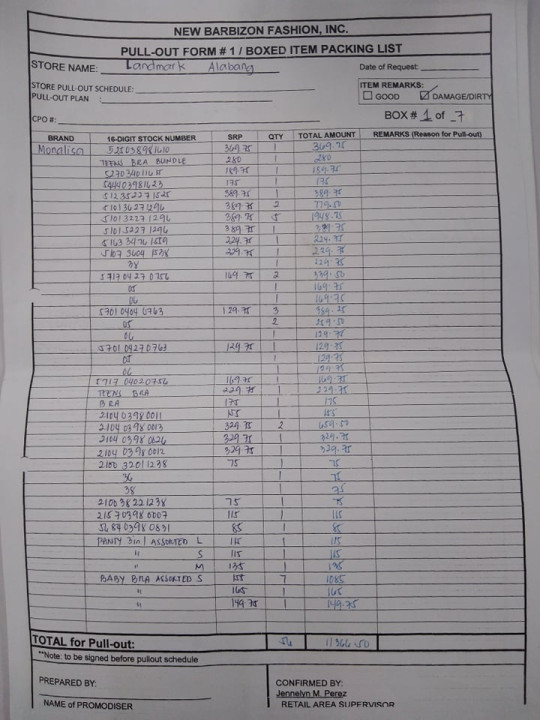 NEW BARBIZON FASHION, INC.
PULL-OUT FORM # 1 / BOXED ITEM PACKING LIST
STORE NAME: Landmark Alabang
Date of Request:
STORE PULL-OUT SCHEDULE:
ITEM REMARKS:
PULL-OUT PLAN :
GOOD DAMAGE/DIRTY
CPO #:
BOX # 1 of 7
BRAND 16-DIGIT STOCK NUMBER SRP QTY TOTAL AMOUNT REMARKS (Reason for Pull-out)
Monalisa 369.75 1 369.75
TEENS BRA BUNDLE 280 1 280
1
175 1 175
389.75 1 389.75
389.75 2 779.50
5
389.75 1 389.75
224.75 1 224.75
229.75 1 229.75
38 1 229.75
5717 0427 0756 169.75 2 339.50
05 1 169.75
06 1 169.75
5701 0404 0763 129.75 3 389.25
05 2 259.50
06 1 129.75
5701 0427 0763 129.75 1 129.75
05 1 129.75
06 1 129.75
5717 0402 0756 169.75 1 169.75
TEENS BRA 229.75 1 229.75
BRA 175 1 175
2104 0398 0011 155 1 155
2104 0398 0013 329.75 2 659.50
2104 0398 0026 329.75 1 329.75
2104 0398 0012 329.75 1 329.75
2100 3201 1238 75 1 75
36 1 75
38 1 75
2100 3822 1238 75 1 75
2157 0398 0007 115 1 115
5687 0398 0831 85 1 85
PANTY 3in1 ASSORTED L 115 1 115
" S 115 1 115
" M 135 1 135
BABY BRA ASSORTED S 155 7 1085
" 165 1 165
" 149.75 1 149.75
TOTAL for Pull-out: 56 11366.50
**Note: to be signed before pullout schedule
PREPARED BY:
CONFIRMED BY:
Jennelyn M. Perez
NAME of PROMODISER
RETAIL AREA SUPERVISOR